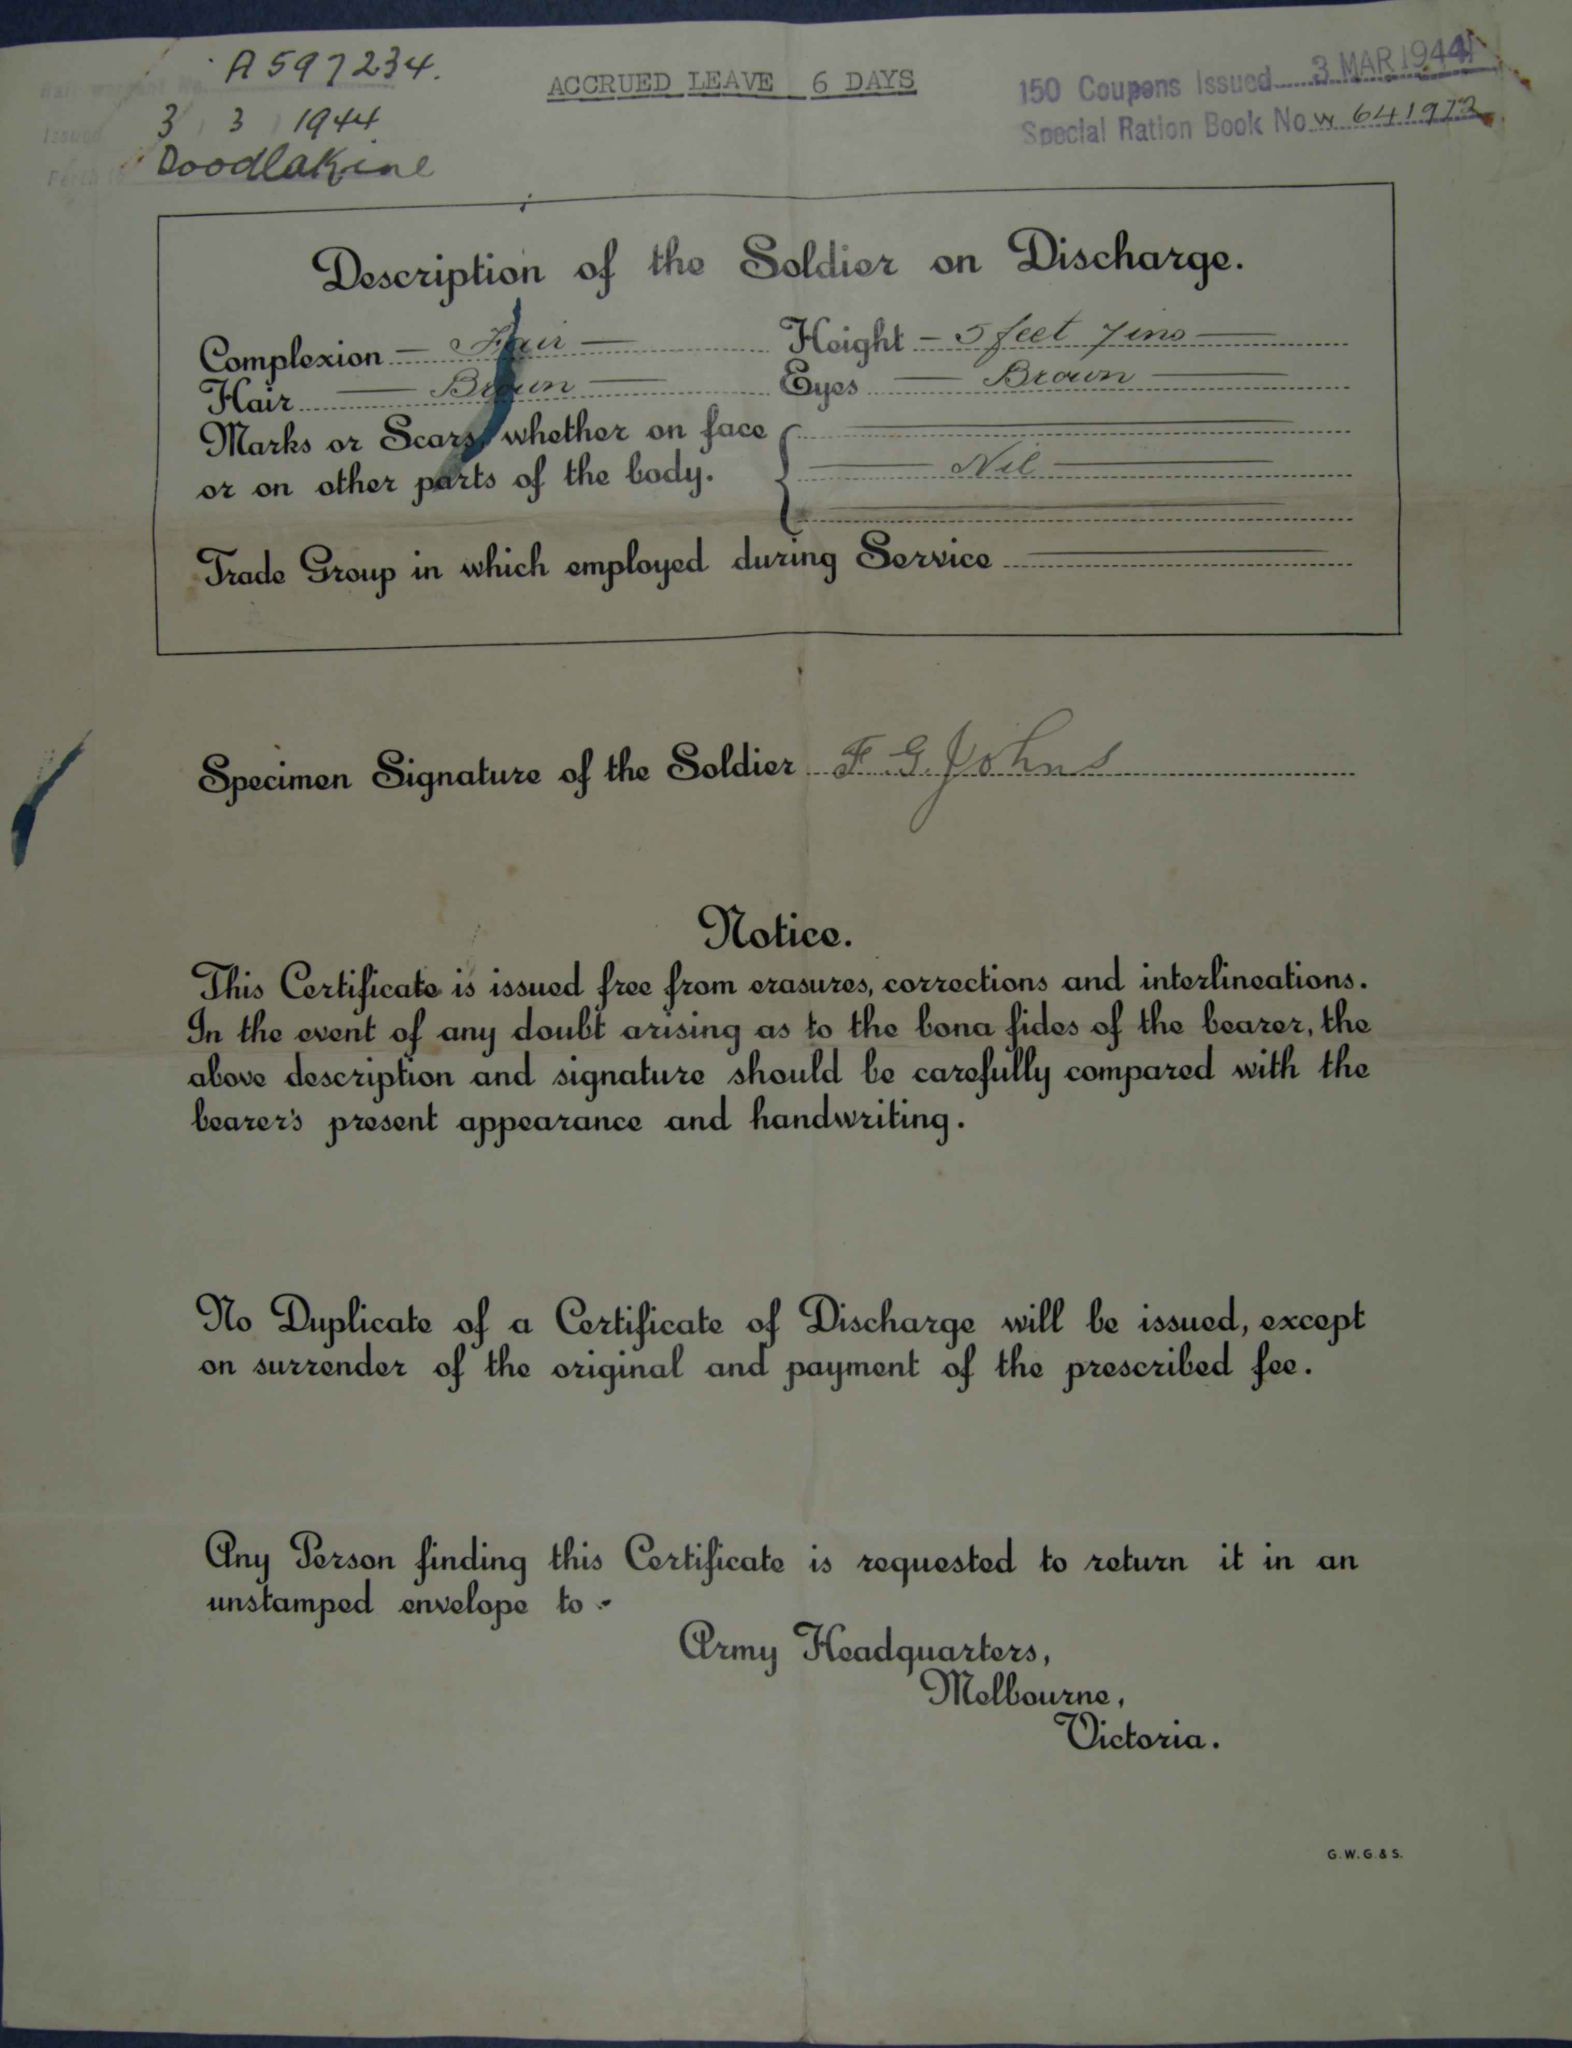 Rail Warrant No. A597234.
Issued 3 / 3 / 1944
Perth to Doodlakine
ACCRUED LEAVE 6 DAYS
150 Coupons Issued 3 MAR 1944
Special Ration Book No W 641972
Description of the Soldier on Discharge.
Complexion — Fair — Height — 5 feet 7 ins —
Hair — Brown — Eyes — Brown —
Marks or Scars, whether on face
or on other parts of the body. — Nil —
Trade Group in which employed during Service
Specimen Signature of the Soldier F. G. Johns
Notice.
This Certificate is issued free from erasures, corrections and interlineations.
In the event of any doubt arising as to the bona fides of the bearer, the
above description and signature should be carefully compared with the
bearer's present appearance and handwriting.
No Duplicate of a Certificate of Discharge will be issued, except
on surrender of the original and payment of the prescribed fee.
Any Person finding this Certificate is requested to return it in an
unstamped envelope to :-
Army Headquarters,
Melbourne,
Victoria.
G. W. G. & S.